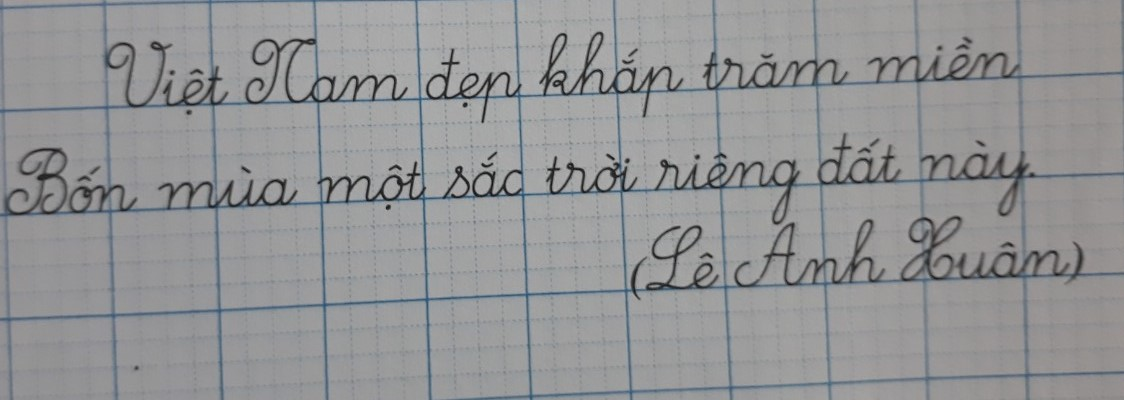 Việt Nam đẹp khắp trăm miền
Bốn mùa một sắc trời riêng đất này.
(Lê Anh Xuân)